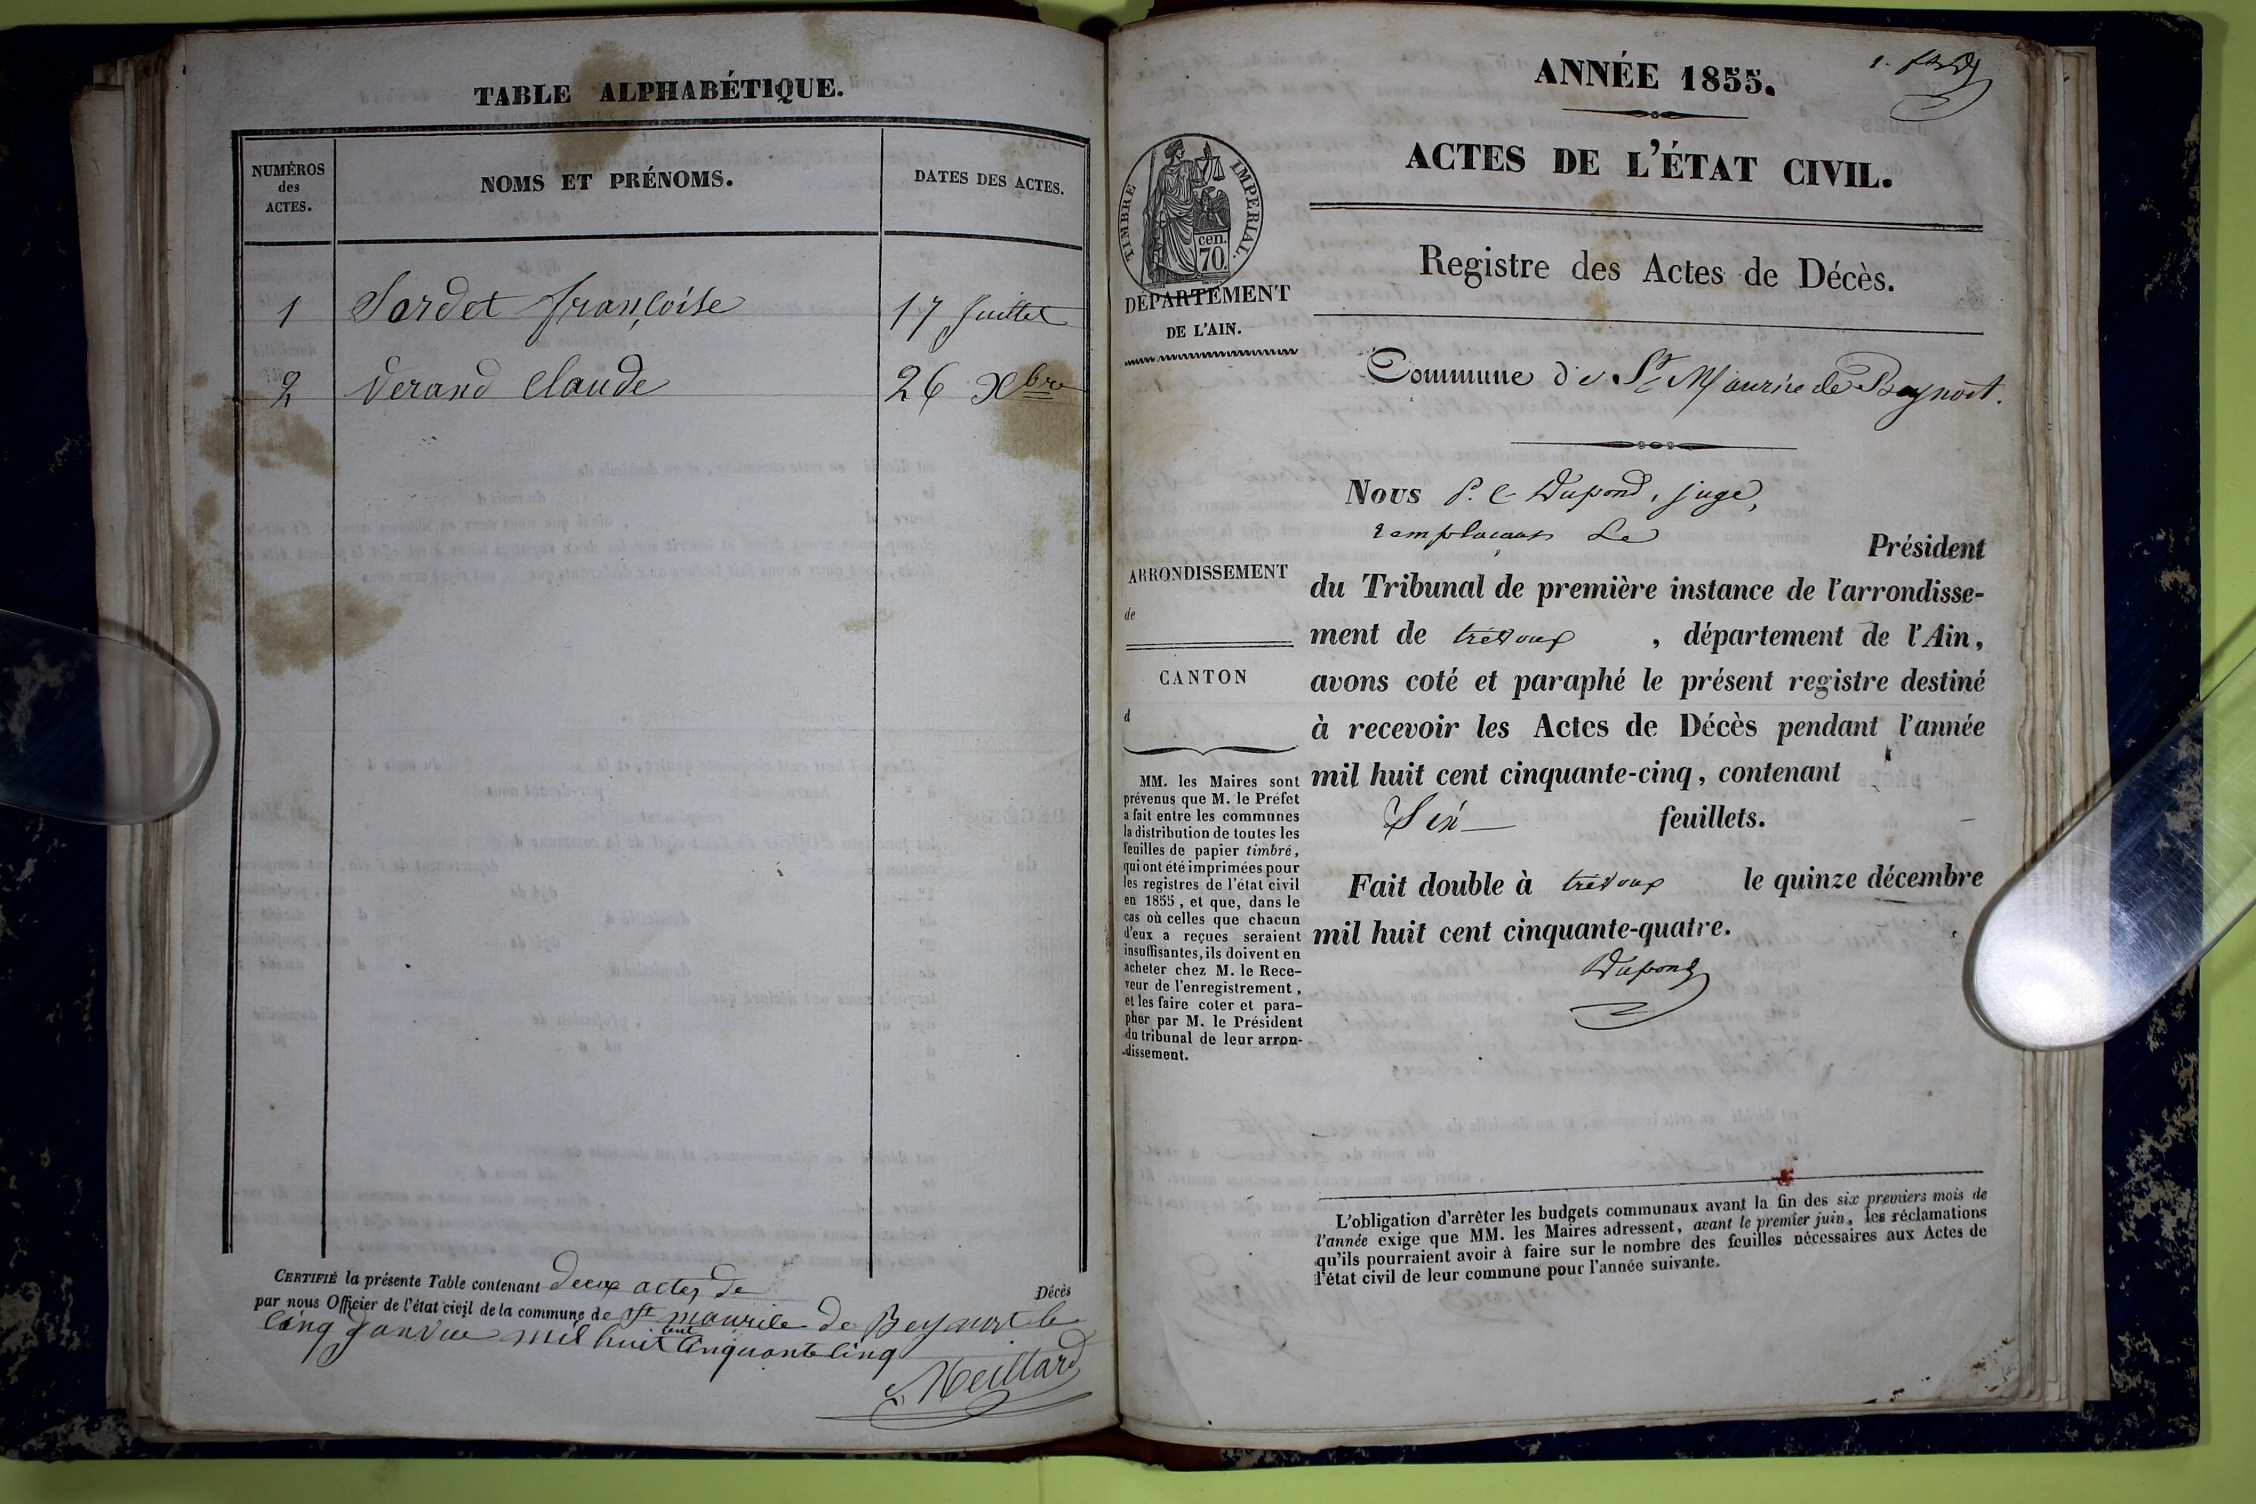 TABLE ALPHABÉTIQUE.
NUMÉROS
des
ACTES.
NOMS ET PRÉNOMS.
DATES DES ACTES.
1 Sordet françoise 17 Juillet
2 Verand Claude 26 Xbre
CERTIFIÉ la présente Table contenant deux actes de Décès
par nous Officier de l'état civil de la commune de St maurice de Beynost le
cinq Janvier mil huit cent cinquante cinq
Neillard
ANNÉE 1855.
ACTES DE L'ÉTAT CIVIL.
TIMBRE IMPÉRIAL.
cen.
70
DÉPARTEMENT
DE L'AIN.
Registre des Actes de Décès.
Commune de St Maurice de Beynost.
Nous P. C. Dupond, juge,
remplaçant le Président
du Tribunal de première instance de l'arrondisse-
ment de trévoux, département de l'Ain,
avons coté et paraphé le présent registre destiné
à recevoir les Actes de Décès pendant l'année
mil huit cent cinquante-cinq, contenant
Six feuillets.
Fait double à trévoux le quinze décembre
mil huit cent cinquante-quatre.
Dupond
ARRONDISSEMENT
de
CANTON
d
MM. les Maires sont
prévenus que M. le Préfet
a fait entre les communes
la distribution de toutes les
feuilles de papier timbré,
qui ont été imprimées pour
les registres de l'état civil
en 1855, et que, dans le
cas où celles que chacun
d'eux a reçues seraient
insuffisantes, ils doivent en
acheter chez M. le Rece-
veur de l'enregistrement,
et les faire coter et para-
pher par M. le Président
du tribunal de leur arron-
dissement.
L'obligation d'arrêter les budgets communaux avant la fin des six premiers mois de
l'année exige que MM. les Maires adressent, avant le premier juin, les réclamations
qu'ils pourraient avoir à faire sur le nombre des feuilles nécessaires aux Actes de
l'état civil de leur commune pour l'année suivante.